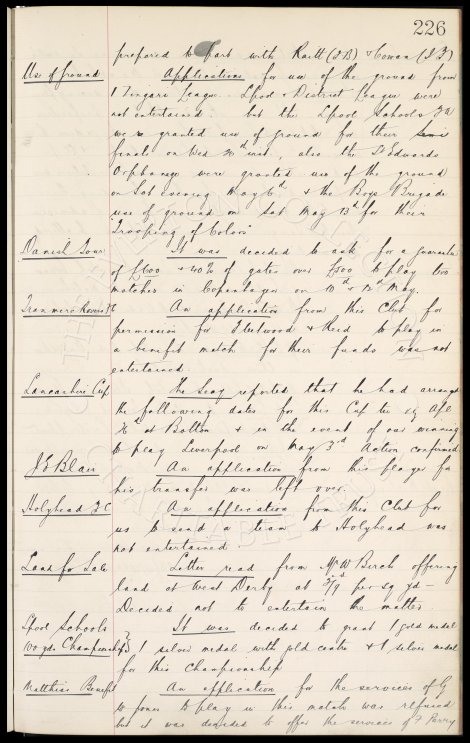 226
prepared to part with Raitt (J.D) & Cowan (J.J)
Use of Ground Applications for use of the ground from
Zingari League. Lpool & District League were
not entertained. but the Lpool Schools F.A
were granted use of ground for their Semi
finals on Wed inst, also the St Edwards
Orphanage were granted use of the ground
on Sat evening May 6th & the Boys Brigade
use of ground on Sat May 13th for their
"Trooping of Colors"
Danish Tour It was decided to ask for a guarantee
of £600 & 40% of gates over £500 to play two
matches in Copenhagen on 10th & 12th May.
Tranmere Rovers An application from this Club for
permission for Fleetwood & Reid to play in
a benefit match for their funds was not
entertained.
Lancashire Cup The Secy reported that he had arranged
the following dates for this Cup tie eg Apl
26th at Bolton & in the event of our winning
to play Liverpool on May 3rd Action confirmed
J E Blair An application from this player for
his transfer was left over.
Holyhead F C An application from this Club for
us to send a team to Holyhead was
not entertained
Land for Sale Letter read from Mr W Birch offering
land at West Derby at 3/9d per sq yd -
Decided not to entertain the matter.
Lpool Schools It was decided to grant 1 gold medal
100 yds Championship 1 silver medal with gold centre & 1 silver medal
for this Championship
Matthias Benefit An application for the services of
to play in this match was refused
but it was decided to offer the services of F Parry